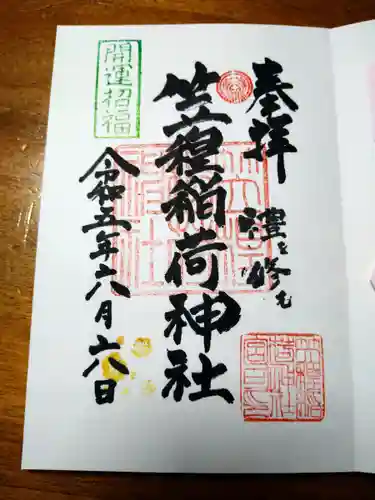 奉拝
禮を修む
笠䅣稲荷神社
開運招福
令和五年六月六日